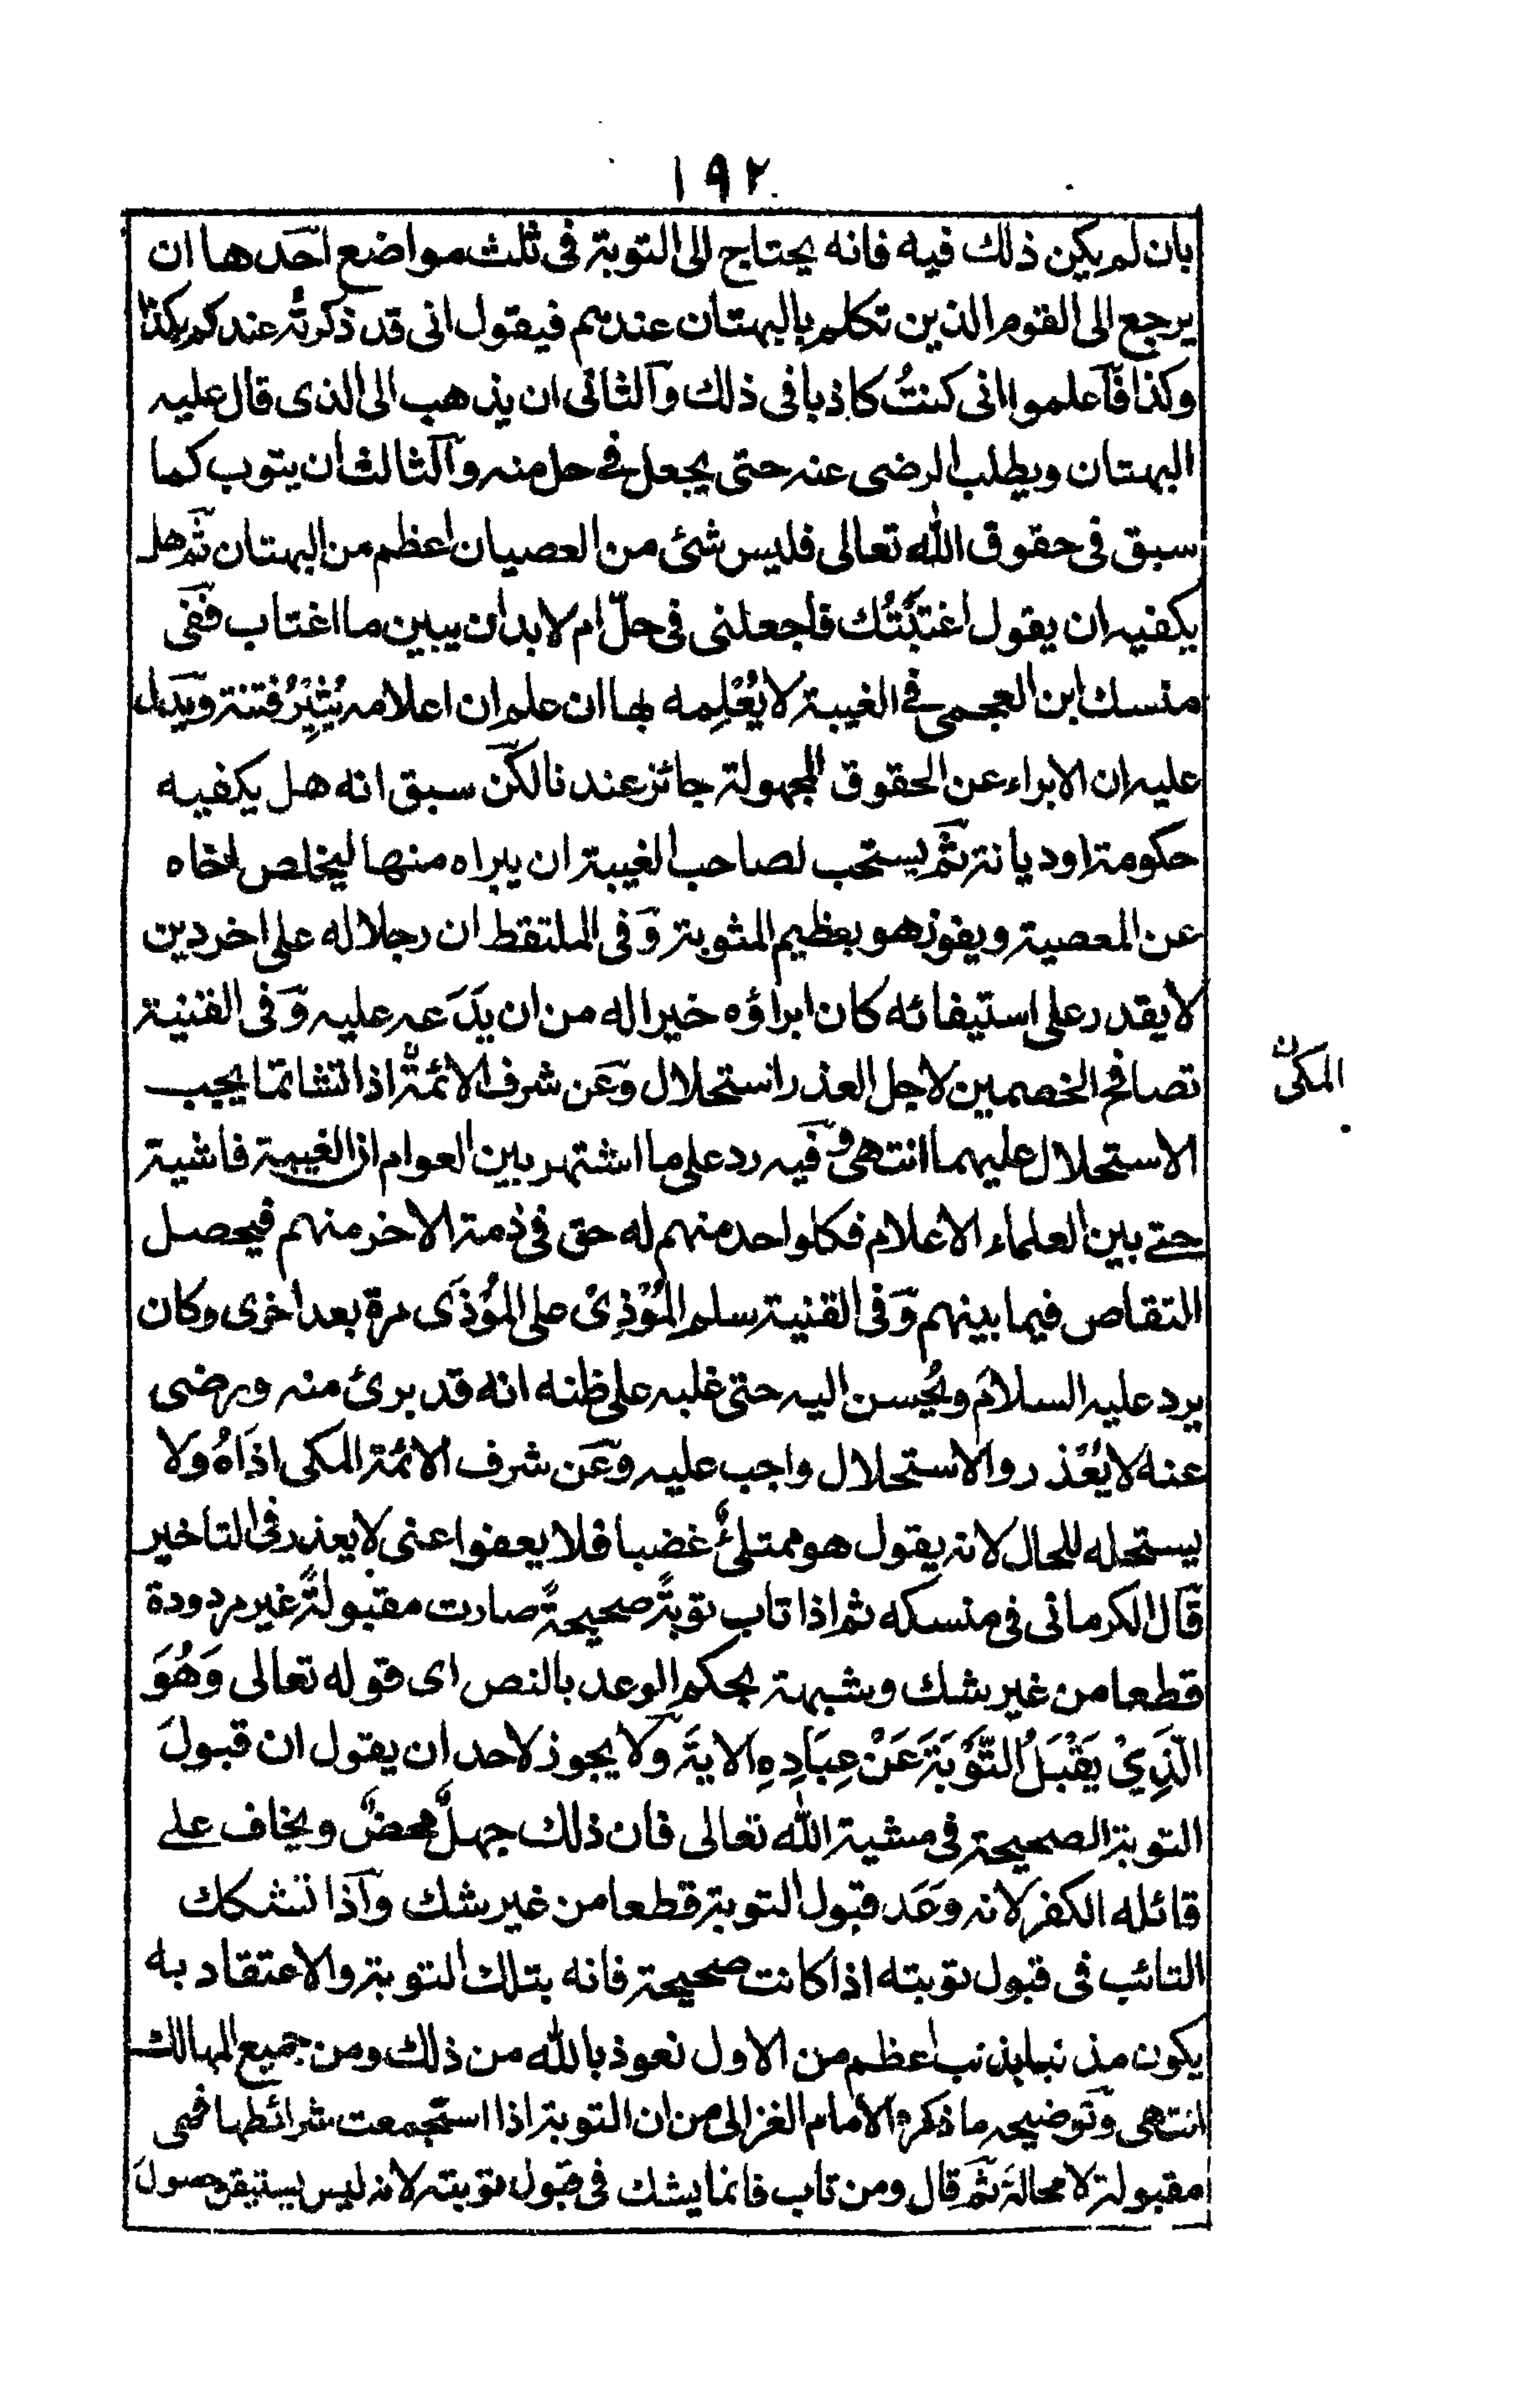 ١٩٢
بان لم يكن ذلك فيه فانه يحتاج الى التوبة فى ثلث مواضع احدها ان
يرجع الى القوم الذين تكلم بالبهتان عندهم فيقول انى قد ذكرتُه عندكم بكذا
وكذا فاعلموا انى كنتُ كاذبا فى ذلك والثانى ان يذهب الى الذى قال عليه
البهتان ويطلب الرضى عنه حتى يجعل فى حل منه والثالث ان يتوب كما
سبق فى حقوق الله تعالى فليس شئ من العصيان اعظم من البهتان ثم هل
يكفيه ان يقول اغتَبْتُك فاجعلنى فى حلّ ام لابد ان يبين ما اغتاب ففى
منسك ابن العجمى فى الغيبة لا يُعْلِمه بها ان علم ان اعلامه يُثِيْرُ فتنة ويدل
عليه ان الابراء عن الحقوق المجهولة جائز عندنا لكن سبق انه هل يكفيه
حكومة او ديانة ثم يستحب لصاحب الغيبة ان يبراه منها ليخلص اخاه
عن المعصية ويفوز هو بعظيم المثوبة وفى الملتقط ان رجلا له على اخر دين
لا يقدر على استيفائه كان ابراؤه خيرا له من ان يدَعه عليه وفى القنية
تصافح الخصمين لاجل العذر استحلال وعن شرف الائمةن اذا تشاتما يجب
المكى ن
الاستحلال عليهما انتهى وفيه رد على ما اشتهر بين العوام ان الغيبة فاشية
حتى بين العلماء الاعلام فكلواحد منهم له حق فى ذمة الاخر منهم فيحصل
التقاص فيما بينهم وفى القنية سلم المُؤْذِىْ على المُؤذَى مرة بعد اخرى وكان
يرد عليه السلامَ ويُحسن اليه حتى غلبه على ظنه انه قد برئ منه ورضى
عنه لا يُعْذر والاستحلال واجب عليه وعن شرف الائمة المكى اذَاهُ ولا
يستحله للحال لانه يقول هو ممتلئٌ غضبا فلا يعفوا عنى لا يعذر فى التاخير
قال الكرمانى فى منسكه ثم اذا تاب توبةً صحيحةً صارت مقبولةً غير مردودة
قطعا من غير شك وشبهة بحكم الوعد بالنص اى قوله تعالى وَهُوَ
الَّذِيْ يَقْبَلُ التَّوْبَةَ عَنْ عِبَادِهِ الاية ولا يجوز لاحد ان يقول ان قبولَ
التوبة الصحيحة فى مشية الله تعالى فان ذلك جهلٌ محضٌ ويخاف على
قائله الكفر لانه وعد قبول التوبة قطعا من غير شك واذا تشكك
التائب فى قبول توبته اذا كانت صحيحة فانه بتلك التوبة والاعتقاد به
يكون مذنبا بذنب اعظم من الاول نعوذ بالله من ذلك ومن جميع المهالك
انتهى وتوضيحه ما ذكره الامام الغزالى من ان التوبة اذا استجمعت شرائطها فهى
مقبولة لا محالة ثم قال ومن تاب فانما يشك فى قبول توبته لانه ليس يستيقن حصولَ